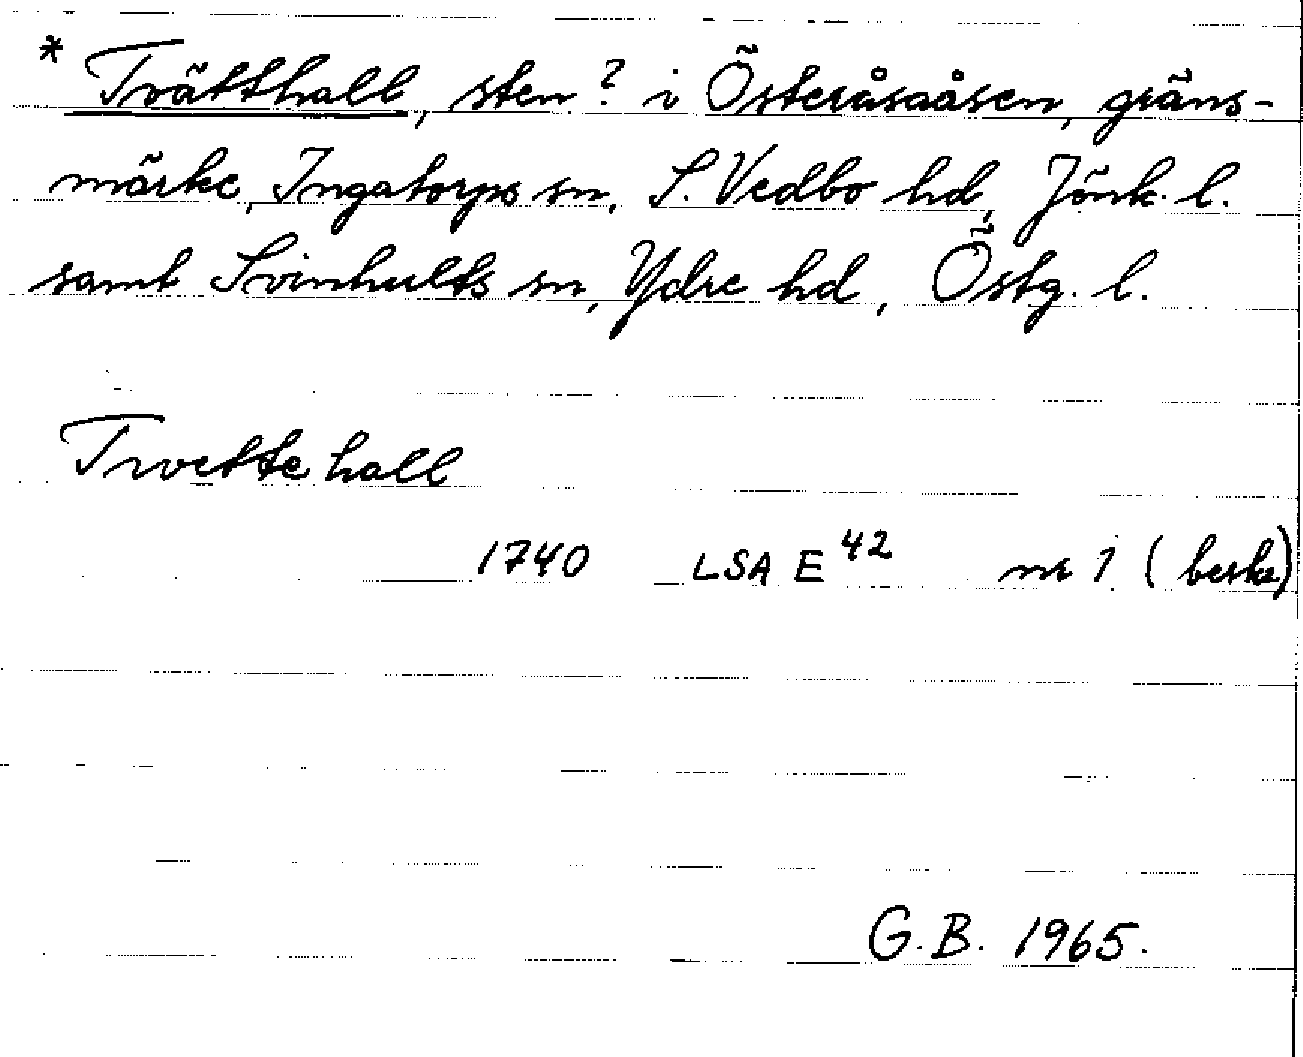 * Tvätthall, sten? i Österåsaåsen, gräns-
märke, Ingatorps sn, S. Vedbo hd, Jönk. l.
samt Svinhults sn, Ydre hd, Östg. l.
Twettehall
1740 LSA E 42 nr 1 (beskr)
G.B. 1965.